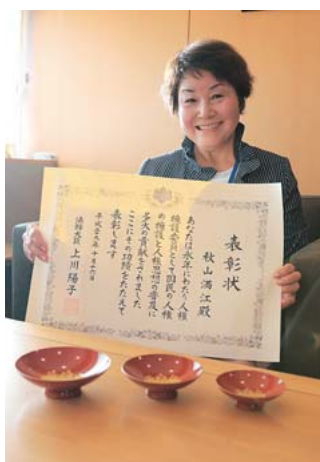 表彰状
秋山満江殿
あなたは永年にわたり人権
擁護委員として国民の人権
の擁護と人権思想の普及に
多大の貢献をされました
ここにその功績をたたえて
表彰します
平成
法務大臣 上川陽子